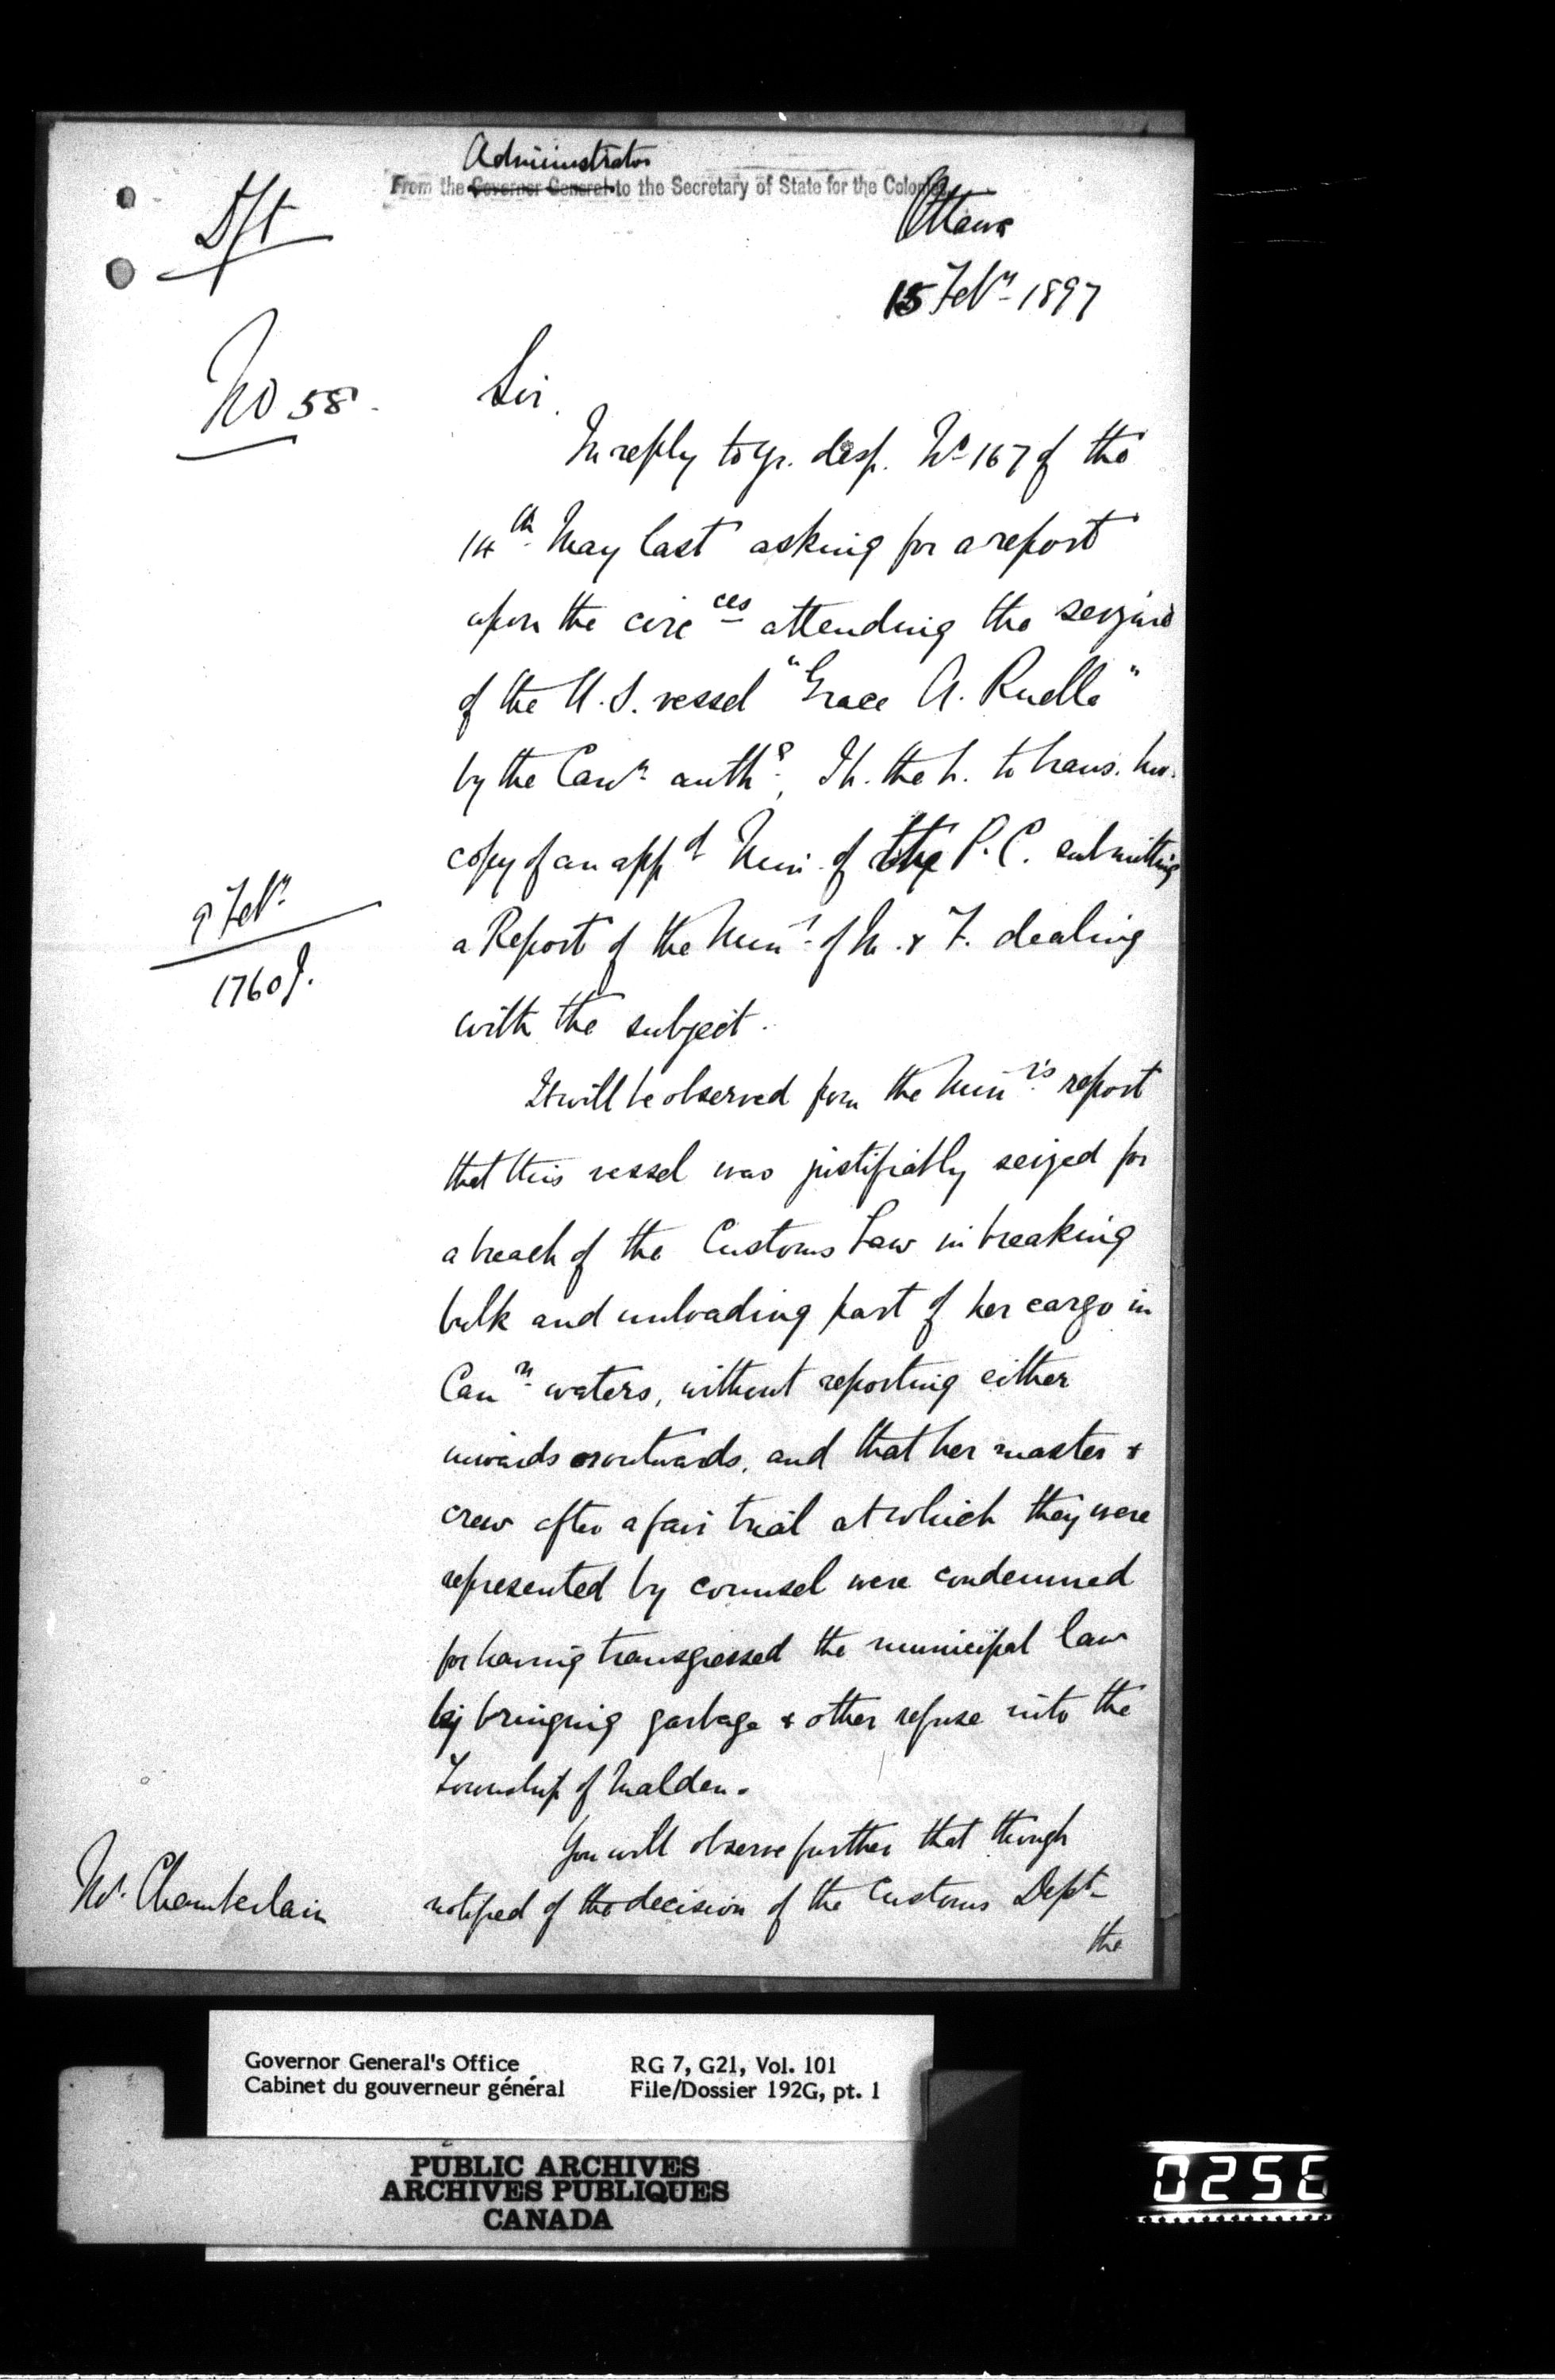 Administrator
From the Governor General to the Secretary of State for the Colonies
Dft
Ottawa
15 Feby 1897
No 58.
Sir,
In reply to yr. desp. No 167 of the
14th May last asking for a report
upon the circces attending the seizure
of the U.S. vessel "Grace A. Ruelle"
by the Cann auths, I h. the h. to trans. hw.
copy of an appd Min. of the P.C. submitting
a Report of the Minr of M. & F. dealing
with the subject.
9 Feby
1760 J.
It will be observed from the Minr's report
that this vessel was justifiably seized for
a breach of the Customs Law in breaking
bulk and unloading part of her cargo in
Cann waters, without reporting either
inwards or outwards, and that her master &
crew after a fair trial at which they were
represented by counsel were condemned
for having transgressed the municipal law
by bringing garbage & other refuse into the
Township of Malden.
You will observe further that though
notified of the decision of the Customs Dept
the
Mr. Chamberlain
Governor General's Office
Cabinet du gouverneur général
RG 7, G21, Vol. 101
File/Dossier 192G, pt. 1
PUBLIC ARCHIVES
ARCHIVES PUBLIQUES
CANADA